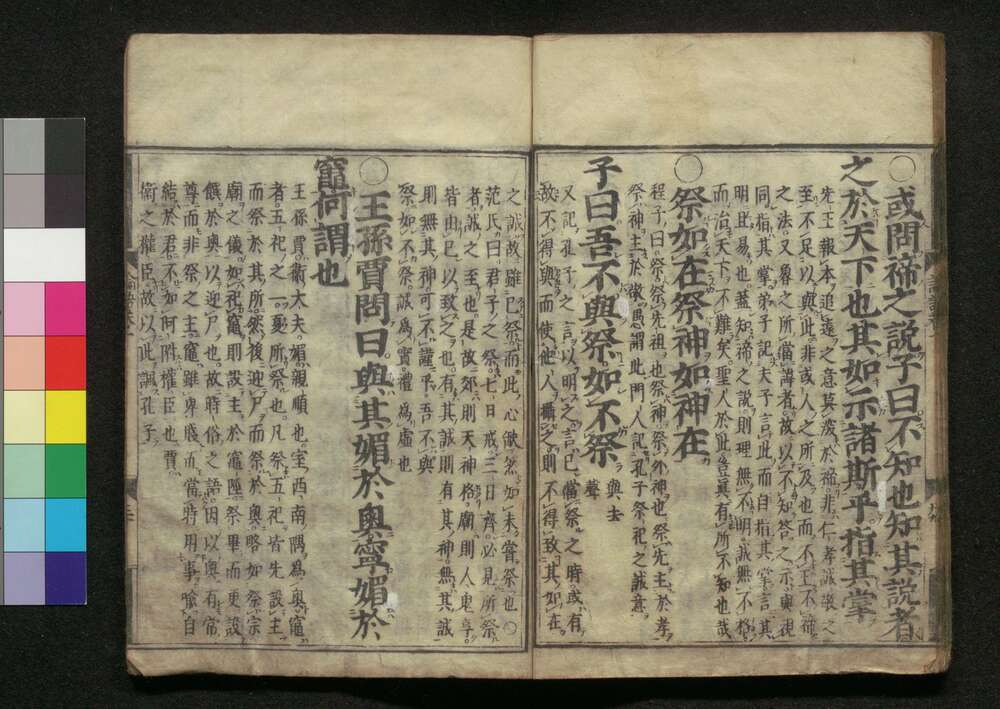 〇或問禘之説子曰不知也知其説者
之於天下也其如示諸斯乎指其掌
先王報本追遠之意莫深於禘非仁孝誠敬之
至不足以與此非或人之所及也而不王不禘
之法又魯之所當諱者故以不知答之示與視
同指其掌弟子記夫子言此而自指其掌言其
明且易也蓋知禘之説則理無不明誠無不格
而治天下不難矣聖人於此豈真有所不知也哉
〇祭如在祭神如神在
程子曰祭祭先祖也祭神祭外神也祭先主於孝
祭神主於敬愚謂此門人記孔子祭祀之誠意
子曰吾不與祭如不祭 與去聲
又記孔子之言以明之言己當祭之時或有
故不得與而使他人攝之則不得致其如在
之誠故雖已祭而此心缺然如未嘗祭也〇
范氏曰君子之祭七日戒三日齊必見所祭
者誠之至也是故郊則天神格廟則人鬼享
皆由己以致之也有其誠則有其神無其誠
則無其神可不謹乎吾不與
祭如不祭誠為實禮為虛也
〇王孫賈問曰與其媚於奧寧媚於
竈何謂也
王孫賈衛大夫媚親順也室西南隅為奧竈
者五祀之一夏所祭也凡祭五祀皆先設主
而祭於其所然後迎尸而祭於奧略如祭宗
廟之儀如祀竈則設主於竈陘祭畢而更設
饌於奧以迎尸也故時俗之語因以奧有常
尊而非祭之主竈雖卑賤而當時用事喻自
結於君不如阿附權臣也賈
衛之權臣故以此諷孔子